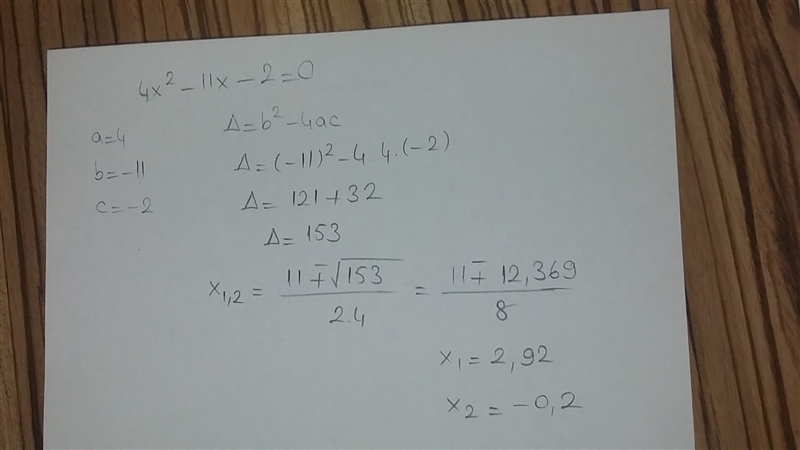 4x² - 11x - 2 = 0
a = 4
Δ = b² - 4ac
b = -11
Δ = (-11)² - 4.4.(-2)
c = -2
Δ = 121 + 32
Δ = 153
x₁,₂ = (11 ∓ √153) / 2.4 = (11 ∓ 12,369) / 8
x₁ = 2,92
x₂ = -0,2